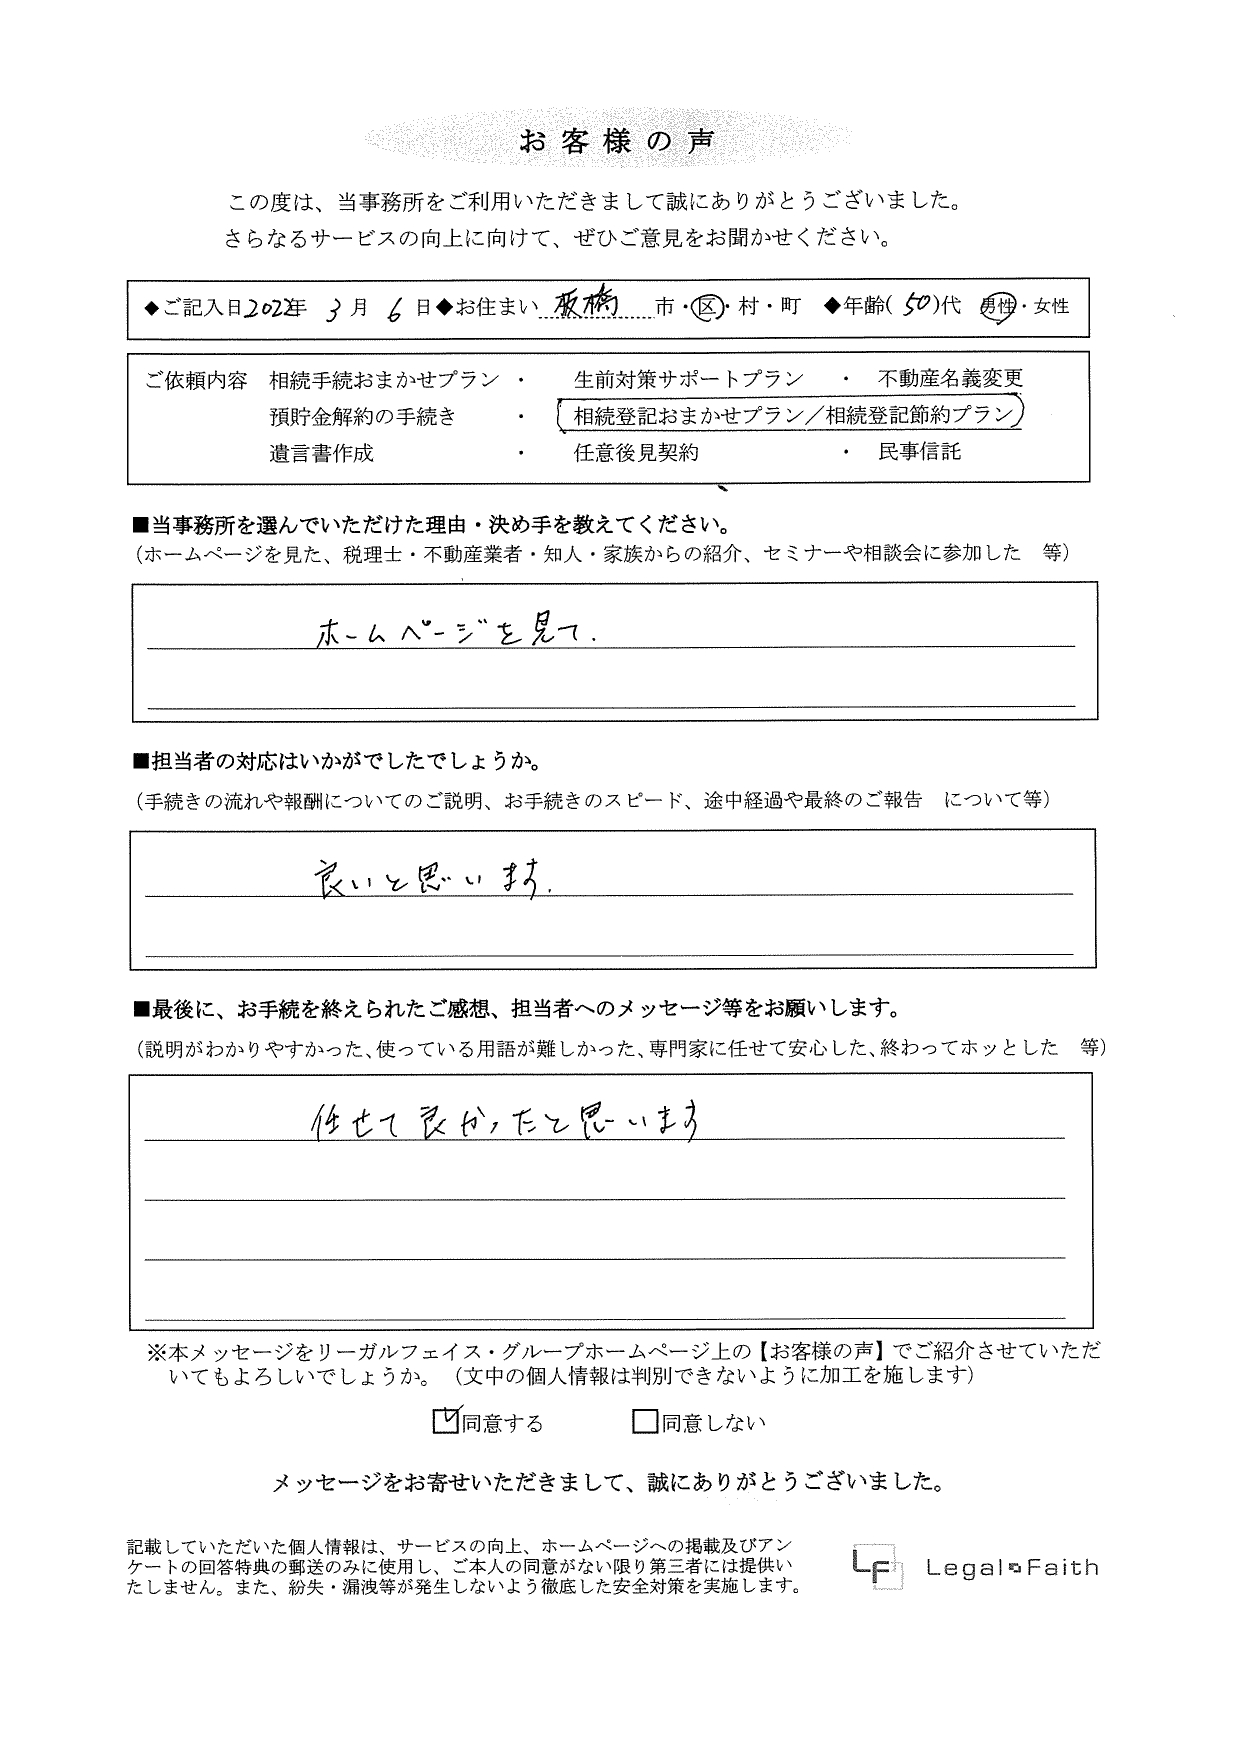 お客様の声
この度は、当事務所をご利用いただきまして誠にありがとうございました。
さらなるサービスの向上に向けて、ぜひご意見をお聞かせください。
◆ご記入日2022年 3月 6日◆お住まい 板橋 市・区・村・町 ◆年齢(50)代 男性・女性
ご依頼内容 相続手続おまかせプラン ・ 生前対策サポートプラン ・ 不動産名義変更
預貯金解約の手続き ・ 相続登記おまかせプラン／相続登記節約プラン
遺言書作成 ・ 任意後見契約 ・ 民事信託
■当事務所を選んでいただけた理由・決め手を教えてください。
（ホームページを見た、税理士・不動産業者・知人・家族からの紹介、セミナーや相談会に参加した 等）
ホームページを見て.
■担当者の対応はいかがでしたでしょうか。
（手続きの流れや報酬についてのご説明、お手続きのスピード、途中経過や最終のご報告 について等）
良いと思います.
■最後に、お手続を終えられたご感想、担当者へのメッセージ等をお願いします。
（説明がわかりやすかった、使っている用語が難しかった、専門家に任せて安心した、終わってホッとした 等）
任せて良かったと思います
※本メッセージをリーガルフェイス・グループホームページ上の【お客様の声】でご紹介させていただ
いてもよろしいでしょうか。（文中の個人情報は判別できないように加工を施します）
☑同意する □同意しない
メッセージをお寄せいただきまして、誠にありがとうございました。
記載していただいた個人情報は、サービスの向上、ホームページへの掲載及びアン
ケートの回答特典の郵送のみに使用し、ご本人の同意がない限り第三者には提供い
たしません。また、紛失・漏洩等が発生しないよう徹底した安全対策を実施します。
LF Legal Faith